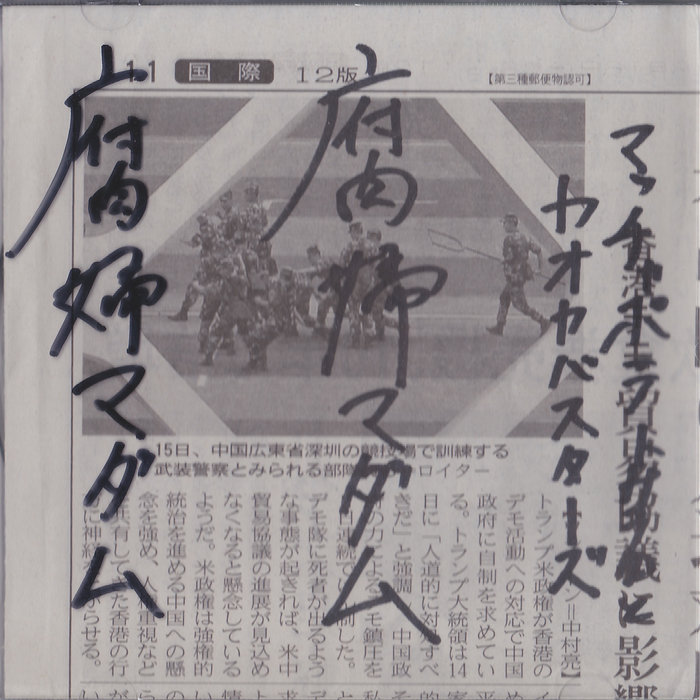 11 国際 12版 【第三種郵便物認可】
カオカバスターズ
腐婦マダム
腐婦マダム
香港
貿易協議に影響
15日、中国広東省深圳の競技場で訓練する
武装警察とみられる部隊 ロイター
ン=中村亮】
トランプ米政権が香港の
デモ活動への対応で中国
政府に自制を求めてい
る。トランプ大統領は14
日に「人道的に対処すべ
きだ」と強調 中国政
の力による デモ鎮圧を
日連続で 制した。
デモ隊に死者が出るよう
な事態が起きれば、米中
貿易協議の進展が見込め
なくなると懸念している
ようだ。米政権は強権的
統治を進める中国への懸
念を強め、人権重視など
を共有してきた香港の行
に神経 がらせる。